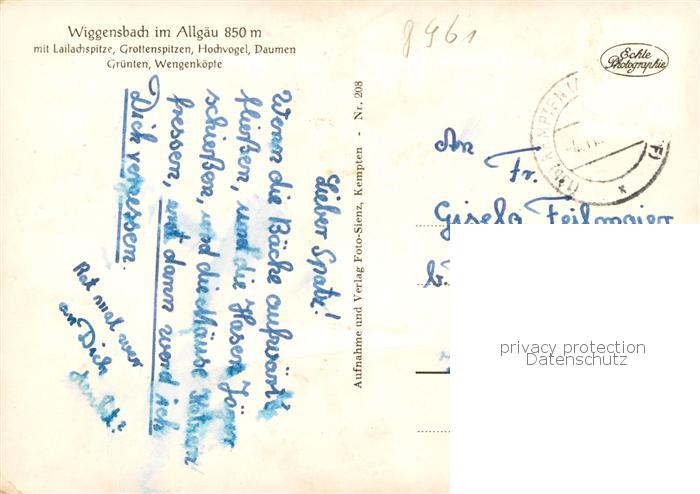 Wiggensbach im Allgäu 850 m
mit Lailachspitze, Grottenspitzen, Hochvogel, Daumen
Grünten, Wengenköpfe
8961
Echte
Photographie
KEMPTEN
An
Fr.
Gisela Feilmaier
Aufnahme und Verlag Foto-Sienz, Kempten - Nr. 208
Lieber Spatz!
Wenn die Bäche aufwärts
fließen, und die Hasen Jäger
schießen, und die Mäuse Katzen
fressen, erst dann werd ich
Dich vergessen.
Rat mal wer
an Dich
denkt?
privacy protection
Datenschutz